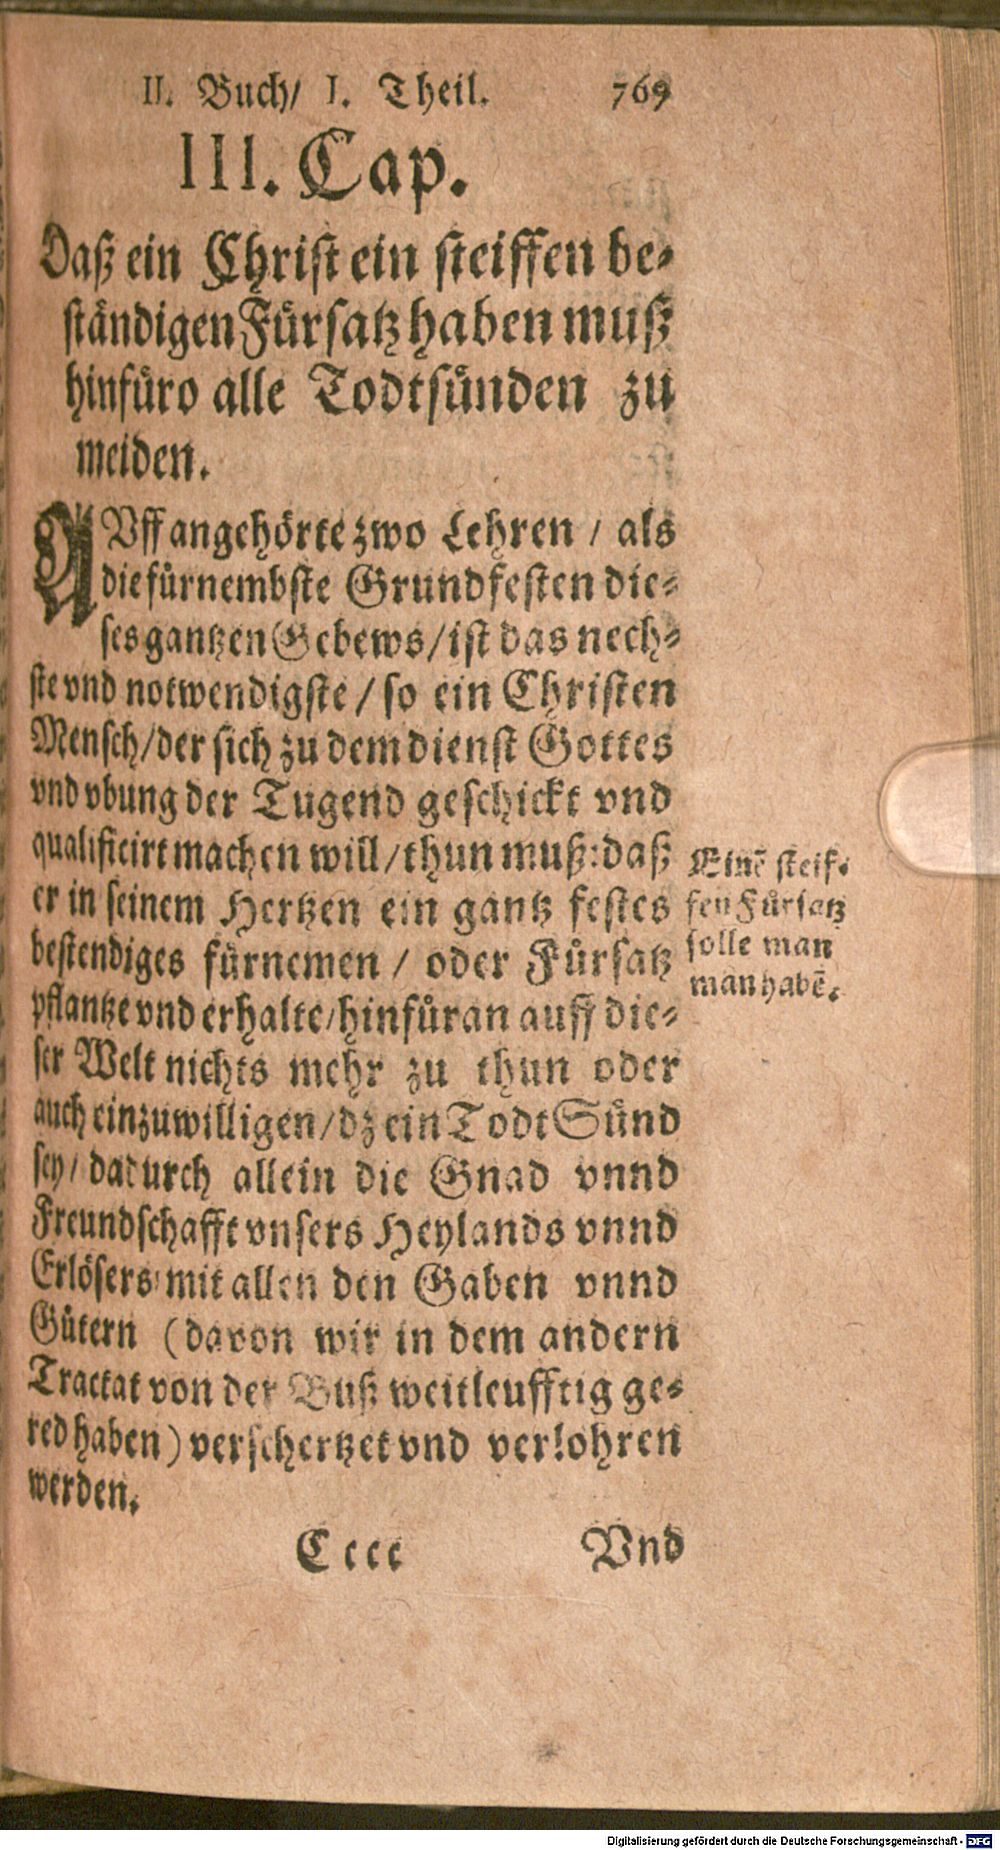 II. Buch/ I. Theil. 769
III. Cap.
Daß ein Christ ein steiffen be-
ständigen Fürsatz haben muß
hinfüro alle Todtsünden zu
meiden.
AVff angehörte zwo Lehren / als
die fürnembste Grundfesten die-
ses gantzen Gebews/ist das nech-
ste vnd notwendigste / so ein Christen
Mensch/der sich zu dem dienst Gottes
vnd vbung der Tugend geschickt vnd
qualificirt machen will/thun muß:daß
er in seinem Hertzen ein gantz festes
bestendiges fürnemen / oder Fürsatz
pflantze vnd erhalte/hinfüran auff die-
ser Welt nichts mehr zu thun oder
auch einzuwilligen/dz ein Todt Sünd
sey/ dadurch allein die Gnad vnnd
Freundschafft vnsers Heylands vnnd
Erlösers/mit allen den Gaben vnnd
Gütern (davon wir in dem andern
Tractat von der Buß weitleufftig ge-
red haben) verschertzet vnd verlohren
werden.
Einē steif-
fen Fürsatz
solle man
man habē.
Cccc Vnd
Digitalisierung gefördert durch die Deutsche Forschungsgemeinschaft - DFG